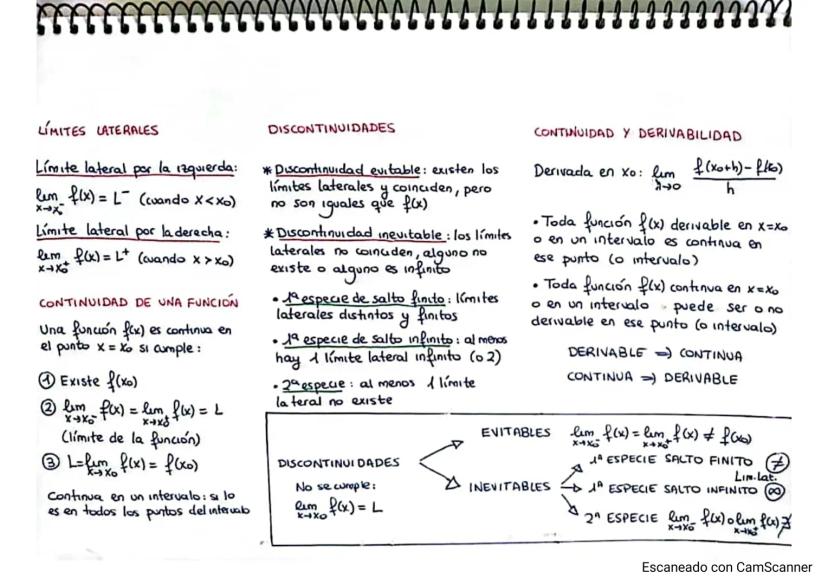 LÍMITES LATERALES
Límite lateral por la izquierda:
lim x→x₀⁻ f(x) = L⁻ (cuando x < x₀)
Límite lateral por la derecha:
lim x→x₀⁺ f(x) = L⁺ (cuando x > x₀)
CONTINUIDAD DE UNA FUNCIÓN
Una función f(x) es continua en
el punto x = x₀ si cumple:
① Existe f(x₀)
② lim x→x₀⁻ f(x) = lim x→x₀⁺ f(x) = L
(límite de la función)
③ L = lim x→x₀ f(x) = f(x₀)
Continua en un intervalo: si lo
es en todos los puntos del intervalo
DISCONTINUIDADES
* Discontinuidad evitable: existen los
límites laterales y coinciden, pero
no son iguales que f(x)
* Discontinuidad inevitable: los límites
laterales no coinciden, alguno no
existe o alguno es infinito
• 1ª especie de salto finito: límites
laterales distintos y finitos
• 1ª especie de salto infinito: al menos
hay 1 límite lateral infinito (o 2)
• 2ª especie: al menos 1 límite
lateral no existe
CONTINUIDAD Y DERIVABILIDAD
Derivada en x₀: lim h→0 f(x₀+h) - f(x₀) / h
• Toda función f(x) derivable en x=x₀
o en un intervalo es continua en
ese punto (o intervalo)
• Toda función f(x) continua en x=x₀
o en un intervalo puede ser o no
derivable en ese punto (o intervalo)
DERIVABLE ⇒ CONTINUA
CONTINUA ⇒ DERIVABLE
DISCONTINUIDADES
No se cumple:
lim x→x₀ f(x) = L
EVITABLES lim x→x₀⁻ f(x) = lim x→x₀⁺ f(x) ≠ f(x₀)
INEVITABLES
1ª ESPECIE SALTO FINITO ≠
Lim. lat.
1ª ESPECIE SALTO INFINITO ∞
2ª ESPECIE lim x→x₀⁻ f(x) o lim x→x₀⁺ f(x) ∄
Escaneado con CamScanner